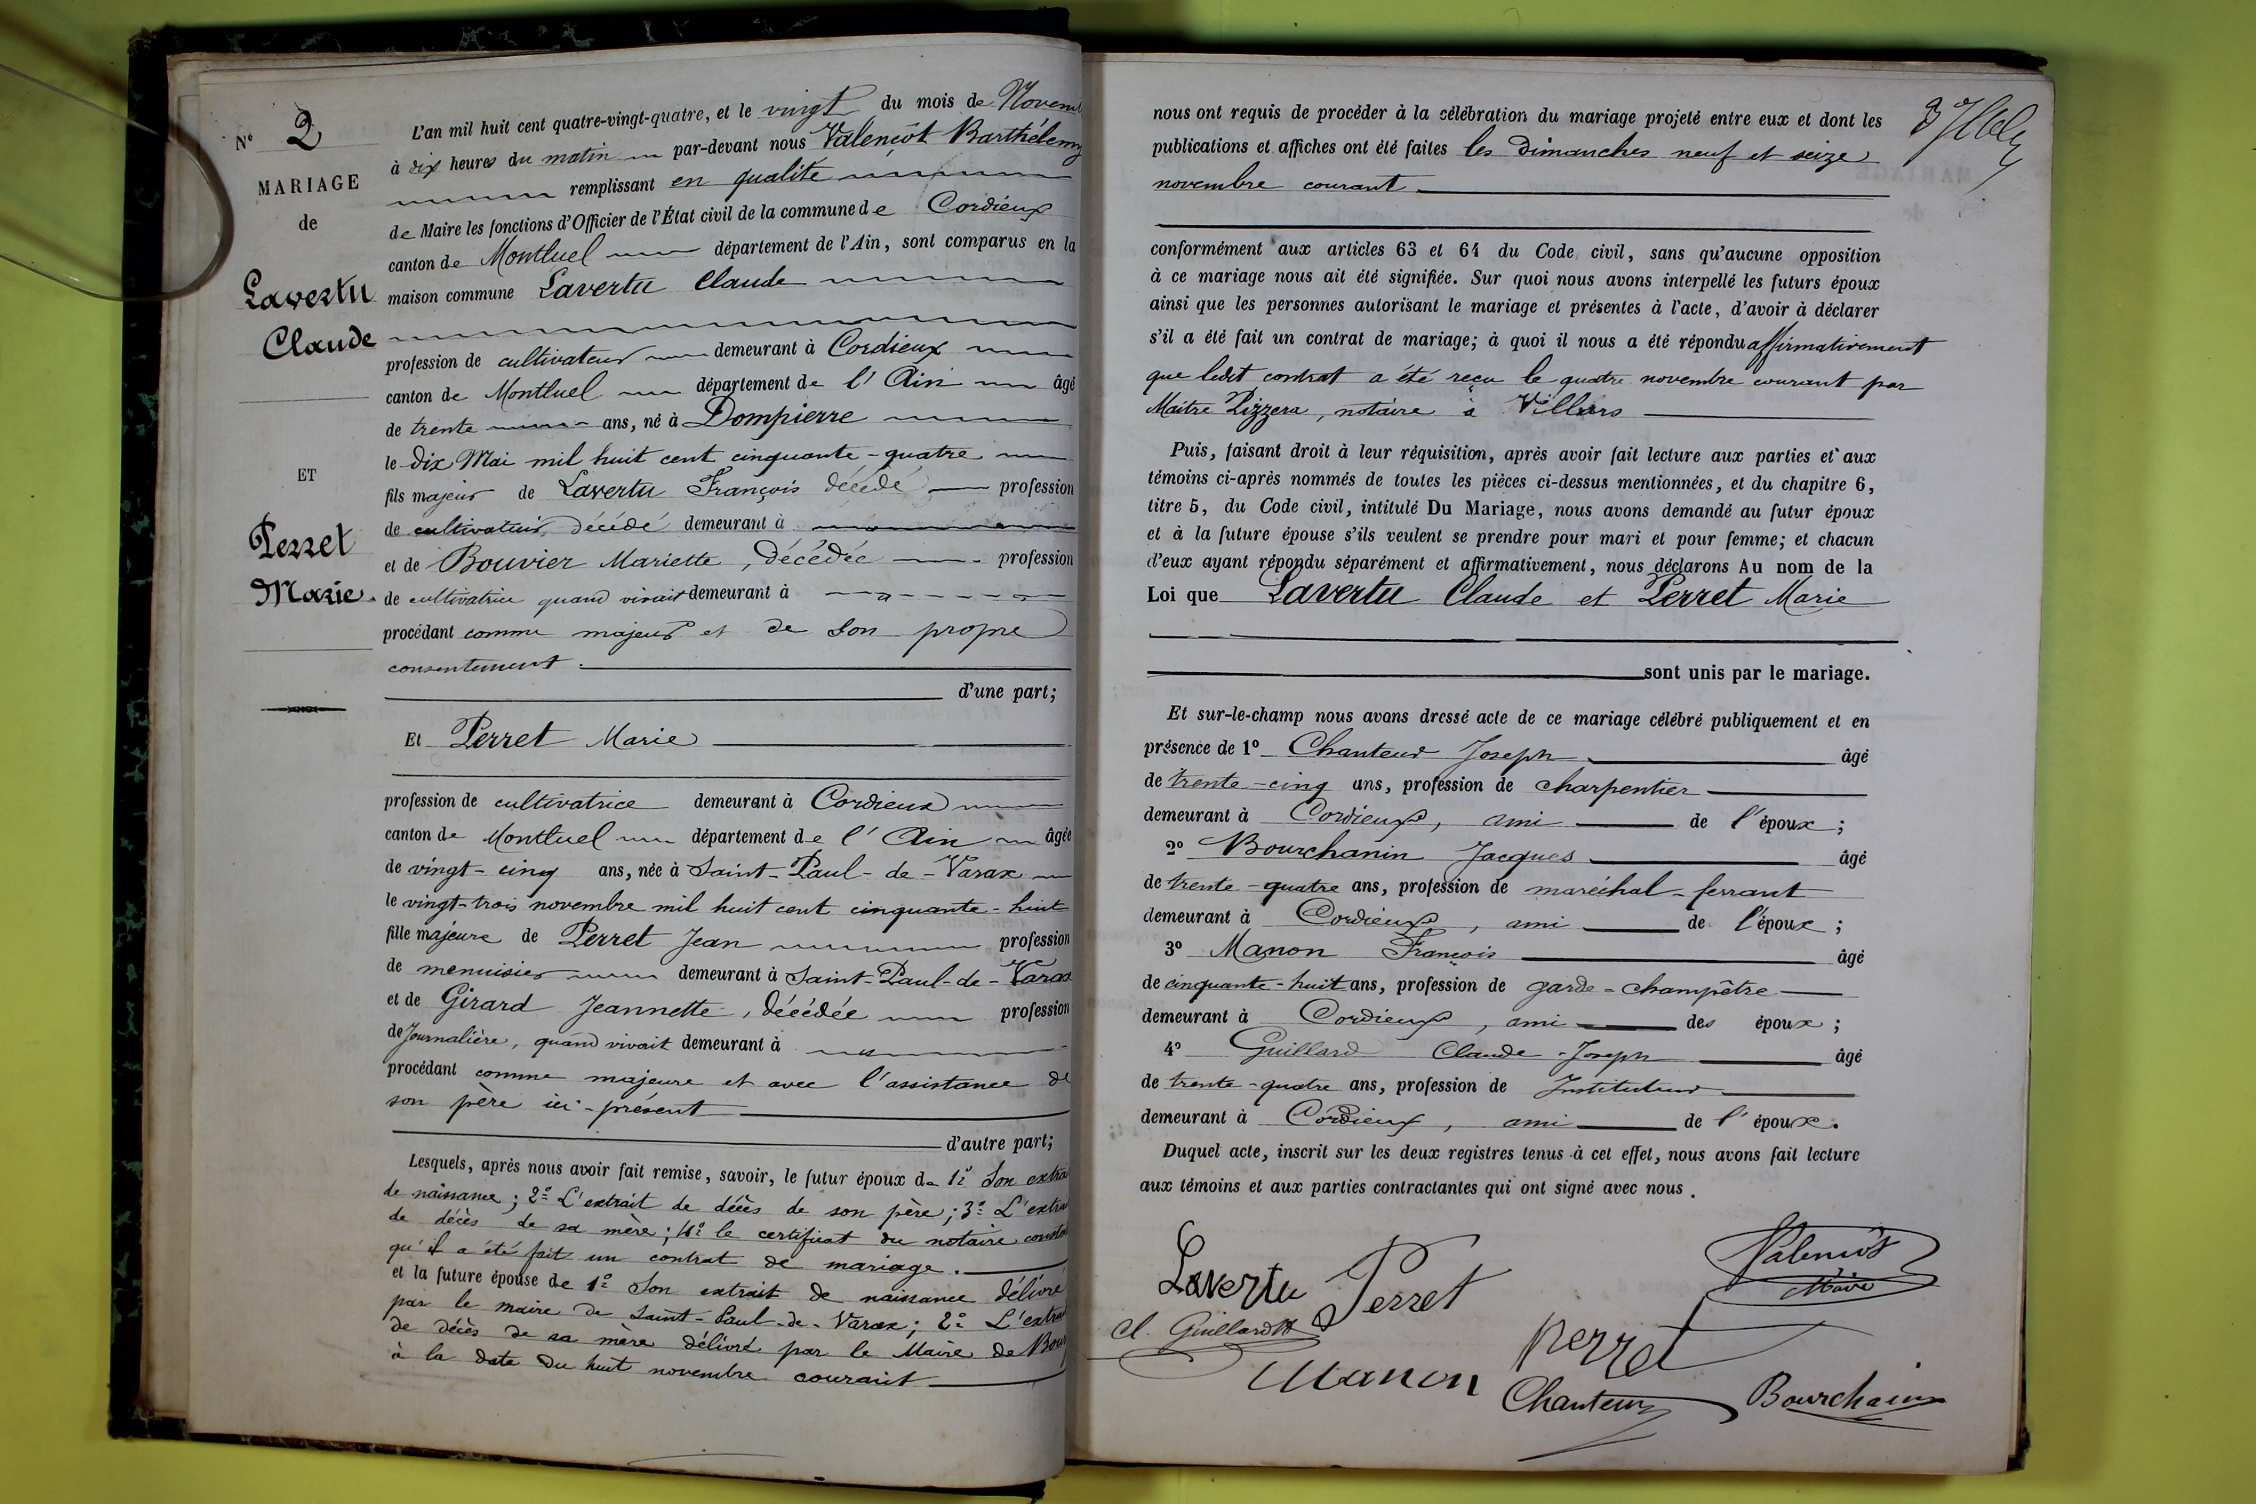 N° 2
MARIAGE
de
Lavertu
Claude
ET
Perret
Marie
L'an mil huit cent quatre-vingt-quatre, et le vingt du mois de Novem
à dix heures du matin par-devant nous Valençot Barthélemy
remplissant en qualité
de Maire les fonctions d'Officier de l'État civil de la commune de Cordieux
canton de Montluel département de l'Ain, sont comparus en la
maison commune Lavertu Claude
profession de cultivateur demeurant à Cordieux
canton de Montluel département de l'Ain âgé
de trente ans, né à Dompierre
le dix Mai mil huit cent cinquante-quatre
fils majeur de Lavertu François décédé profession
de cultivateur, décédé demeurant à
et de Bouvier Mariette, décédée profession
de cultivatrice quand vivait demeurant à
procédant comme majeur et de son propre
consentement.
d'une part;
Et Perret Marie
profession de cultivatrice demeurant à Cordieux
canton de Montluel département de l'Ain âgée
de vingt-cinq ans, née à Saint-Paul-de-Varax
le vingt-trois novembre mil huit cent cinquante-huit
fille majeure de Perret Jean profession
de menuisier demeurant à Saint-Paul-de-Varax
et de Girard Jeannette, décédée profession
de Journalière, quand vivait demeurant à
procédant comme majeure et avec l'assistance de
son père ici-présent
d'autre part;
Lesquels, après nous avoir fait remise, savoir, le futur époux de 1° Son extra
de naissance; 2° L'extrait de décès de son père; 3° L'extra
de décès de sa mère; 4° le certificat du notaire consta
qu'il a été fait un contrat de mariage.
et la future épouse de 1° Son extrait de naissance délivré
par le maire de Saint-Paul-de-Varax; 2° L'extra
de décès de sa mère délivré par le Maire de Bour
à la date du huit novembre courant
nous ont requis de procéder à la célébration du mariage projeté entre eux et dont les
publications et affiches ont été faites les dimanches neuf et seize
novembre courant
conformément aux articles 63 et 64 du Code civil, sans qu'aucune opposition
à ce mariage nous ait été signifiée. Sur quoi nous avons interpellé les futurs époux
ainsi que les personnes autorisant le mariage et présentes à l'acte, d'avoir à déclarer
s'il a été fait un contrat de mariage; à quoi il nous a été répondu affirmativement
que ledit contrat a été reçu le quatre novembre courant par
Maitre Pizzera, notaire à Villars
Puis, faisant droit à leur réquisition, après avoir fait lecture aux parties et aux
témoins ci-après nommés de toutes les pièces ci-dessus mentionnées, et du chapitre 6,
titre 5, du Code civil, intitulé Du Mariage, nous avons demandé au futur époux
et à la future épouse s'ils veulent se prendre pour mari et pour femme; et chacun
d'eux ayant répondu séparément et affirmativement, nous déclarons Au nom de la
Loi que Lavertu Claude et Perret Marie
sont unis par le mariage.
Et sur-le-champ nous avons dressé acte de ce mariage célébré publiquement et en
présence de 1° Chanteur Joseph âgé
de trente-cinq ans, profession de charpentier
demeurant à Cordieux, ami de l'époux;
2° Bourchanin Jacques âgé
de trente-quatre ans, profession de maréchal-ferrant
demeurant à Cordieux, ami de l'époux;
3° Manon François âgé
de cinquante-huit ans, profession de garde-champêtre
demeurant à Cordieux, ami des époux;
4° Guillard Claude-Joseph âgé
de trente-quatre ans, profession de Instituteur
demeurant à Cordieux, ami de l'époux.
Duquel acte, inscrit sur les deux registres tenus à cet effet, nous avons fait lecture
aux témoins et aux parties contractantes qui ont signé avec nous.
Lavertu Perret Valençot
Maire
Cl. Guillard
Perret
Manon Chanteur Bourchanin